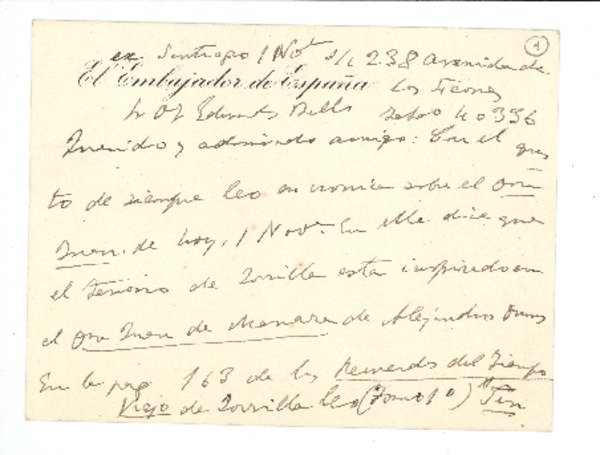 1
ex Santiago 1 Nobre s/c 238 Avenida de
El Embajador de España Los Leones
Sr Dn J Edwards Bello Telefo 40336
Querido y admirado amigo: Con el gus
to de siempre leo su cronica sobre el Don
Juan de hoy, 1 Nove. En ella dice que
el Tenorio de Zorrilla esta inspirado en
el Don Juan de Manara de Alejandro Dumas
En la pag 163 de los Recuerdos del Tiempo
Viejo de Zorrilla leo (Tomo 1º) "Ten